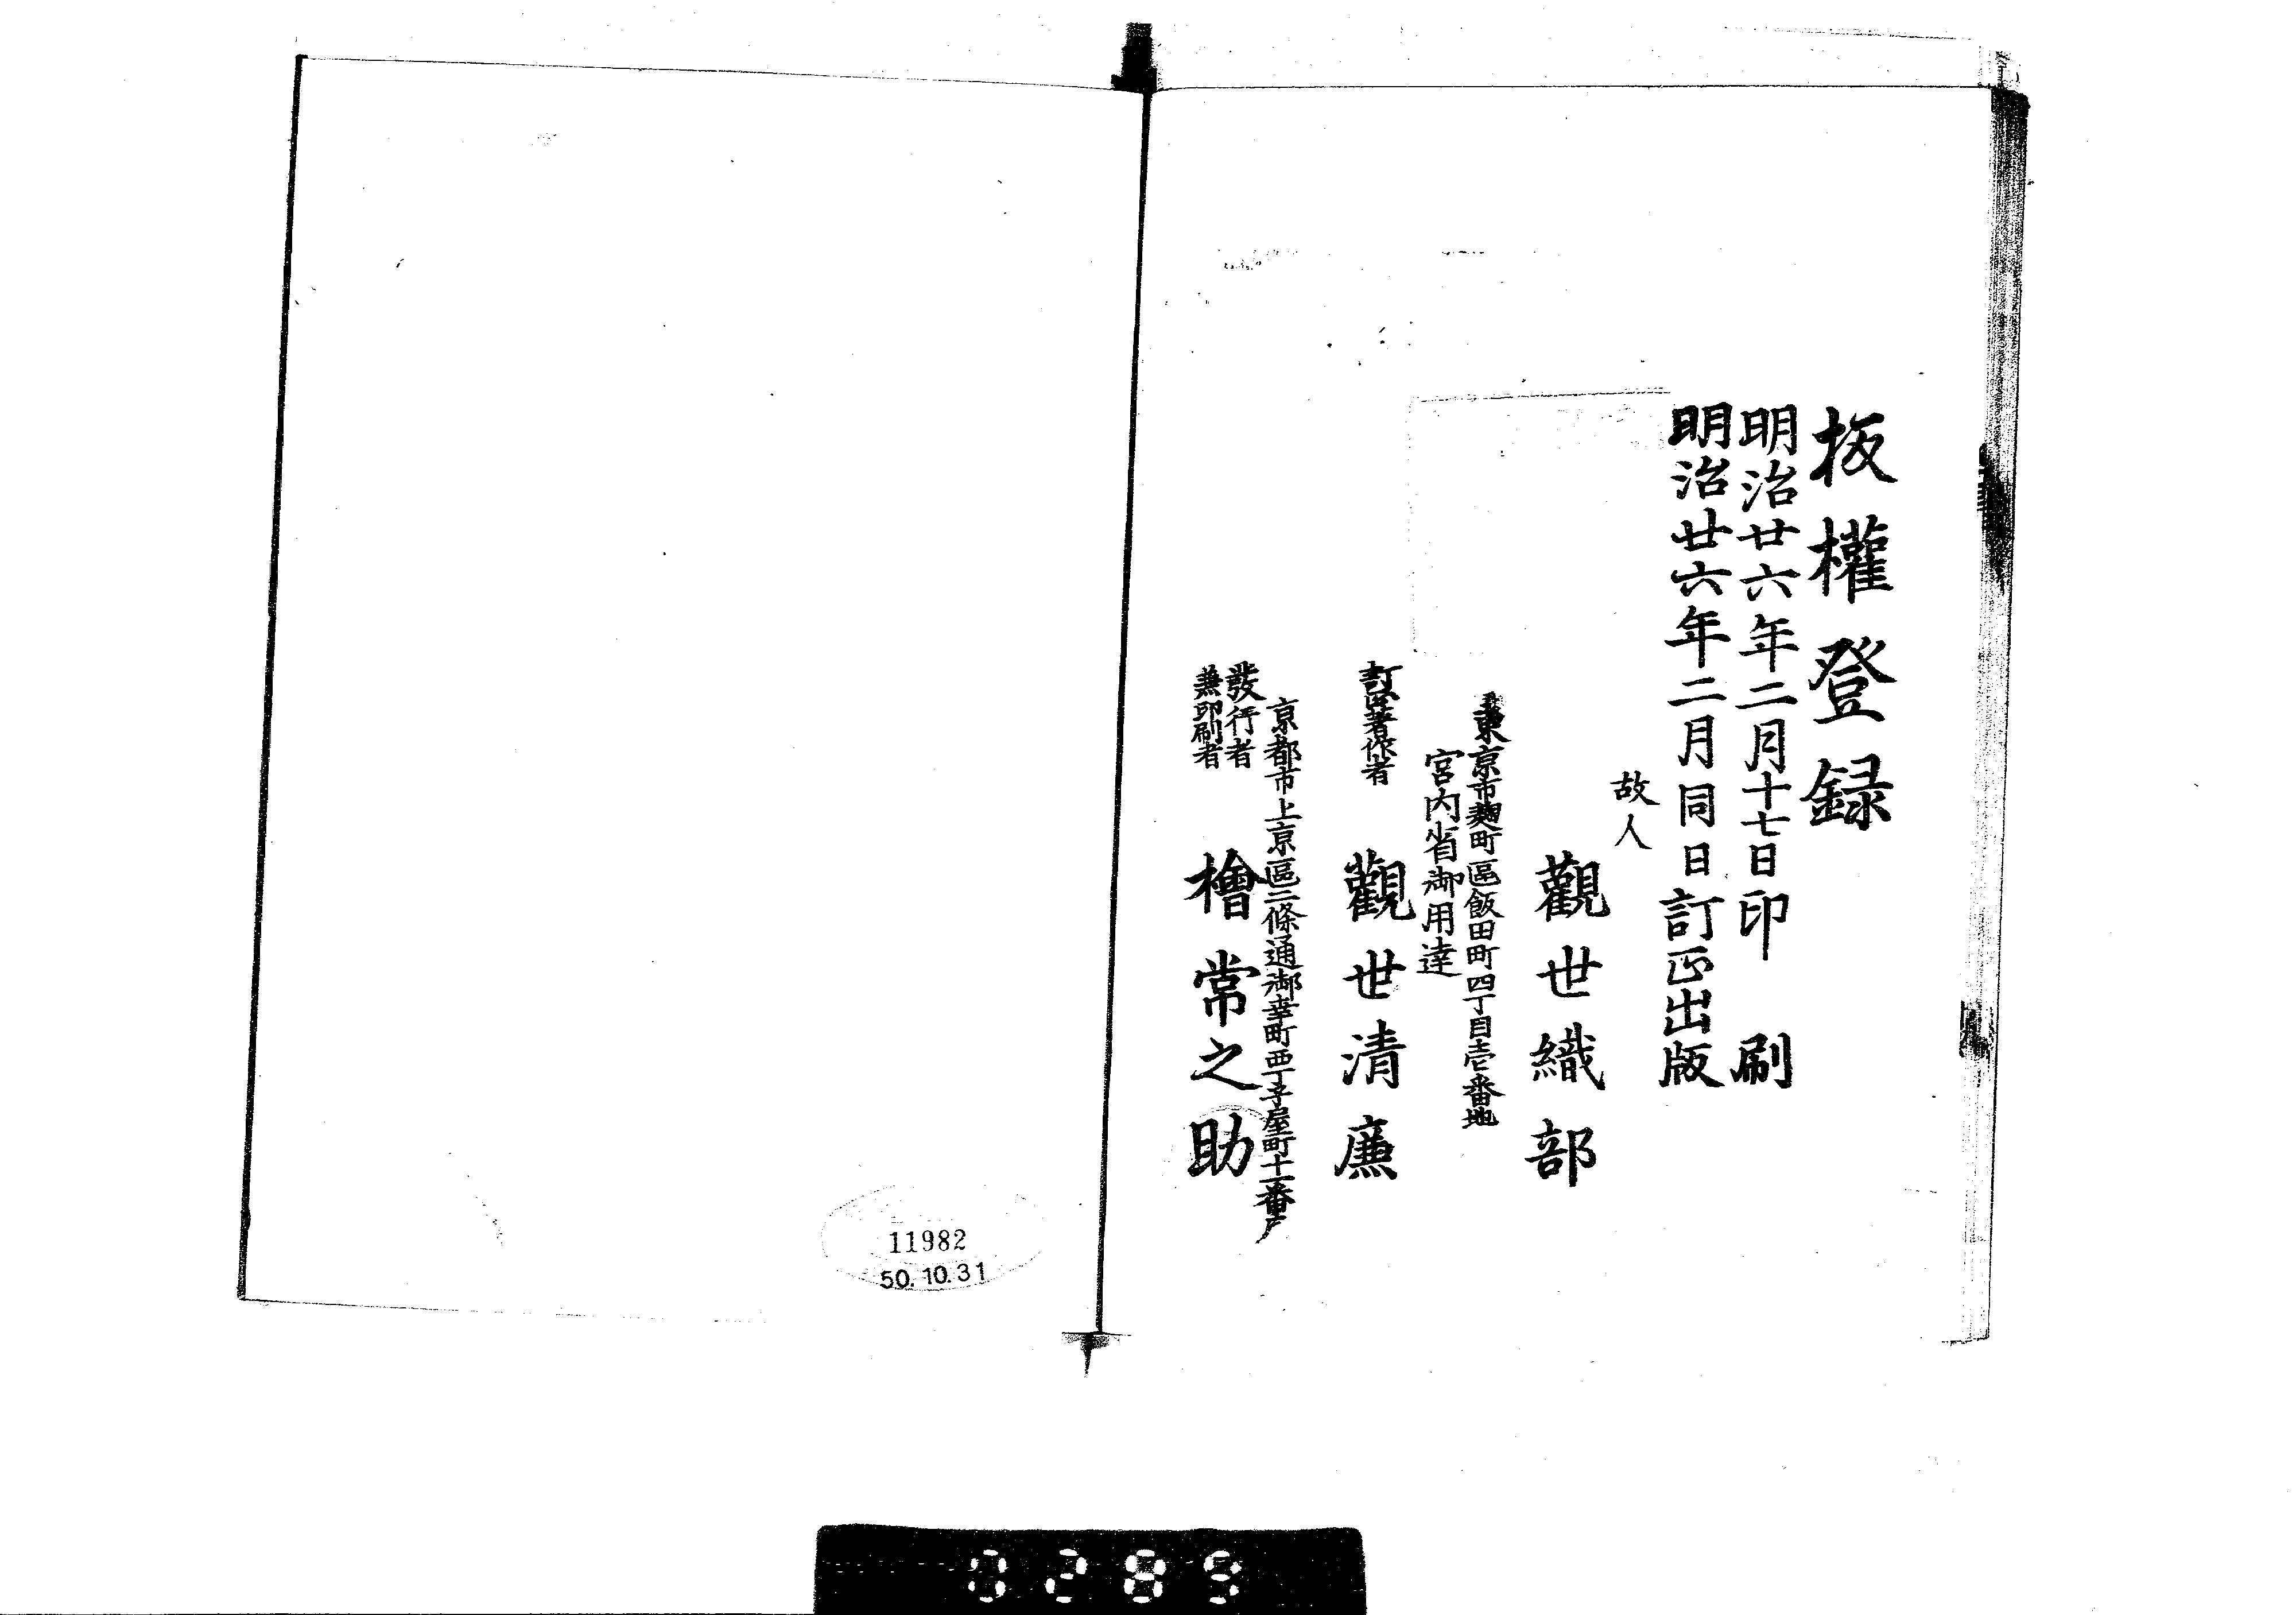 板權登録
明治廿六年二月十七日印刷
明治廿六年二月同日訂正出版
故人
觀世織部
東京市麹町區飯田町四丁目壱番地
宮内省御用達
訂正著作者
觀世清廉
京都市上京區二條通御幸町西丁子屋町十一番戸
發行者
兼印刷者
檜常之助
11982
50.10.31